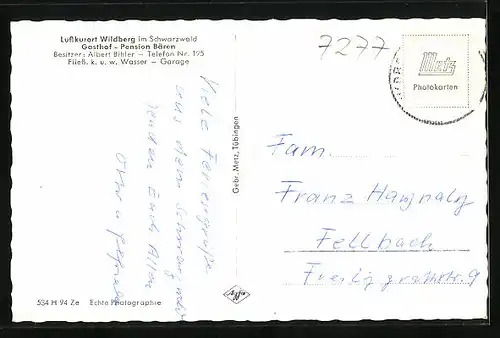 Luftkurort Wildberg im Schwarzwald
Gasthof - Pension Bären
Besitzer: Albert Bihler - Telefon Nr. 195
Fließ. k. u. w. Wasser - Garage
7277
Metz
Photokarten
Viele Feriengrüße
aus dem Schwarzwald
senden Euch Allen
Gebr. Metz, Tübingen
Fam.
Franz
Fellbach
Freiligrathstr. 9
534 H 94 Ze Echte Photographie
Agfa